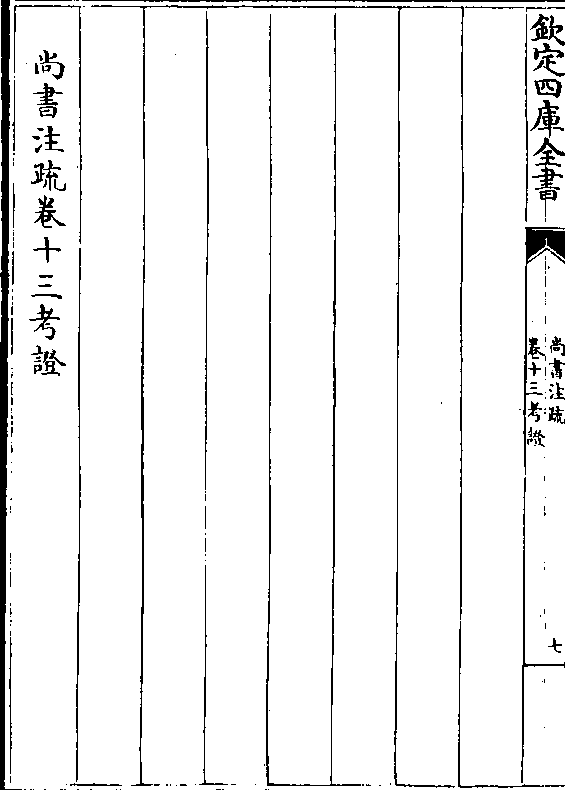 欽定四庫全書
尚書注疏
卷十三考證
七
尚書注疏卷十三考證